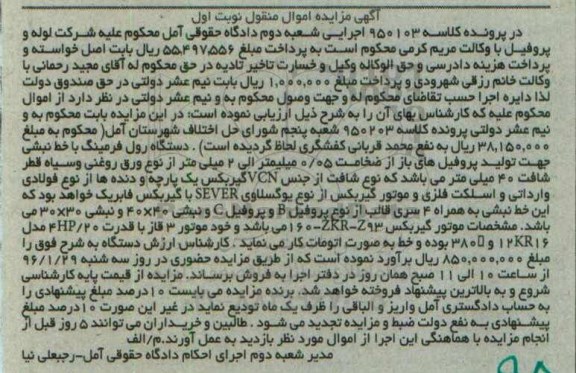 آگهی مزایده اموال منقول نوبت اول
در پرونده کلاسه ۹۵۰۱۰۳ اجرایی شعبه دوم دادگاه حقوقی آمل محکوم علیه شرکت لوله و
پروفیل با وکالت مریم کرمی محکوم است به پرداخت مبلغ ۵۵,۴۹۷,۵۵۶ ریال بابت اصل خواسته و
پرداخت هزینه دادرسی و حق الوکاله وکیل و خسارت تاخیر تادیه در حق محکوم له آقای مجید رحمانی با
وکالت خانم رزقی شهرودی و پرداخت مبلغ ۱,۰۰۰,۰۰۰ ریال بابت نیم عشر دولتی در حق صندوق دولت
لذا دایره اجرا حسب تقاضای محکوم له و جهت وصول محکوم به و نیم عشر دولتی در نظر دارد از اموال
محکوم علیه که کارشناس بهای آن را به شرح ذیل ارزیابی نموده است: در این مزایده بابت محکوم به و
نیم عشر دولتی پرونده کلاسه ۹۵۰۲۰۳ شعبه پنجم شورای حل اختلاف شهرستان آمل( محکوم به مبلغ
۳۸,۱۵۰,۰۰۰ ریال به نفع محمد قربانی کفشگری لحاظ گردیده است) . دستگاه رول فرمینگ با خط نبشی
جهت تولید پروفیل های باز از ضخامت ۰/۰۵ میلیمتر الی ۲ میلی متر از نوع ورق روغنی وسیاه قطر
شافت ۴۰ میلی متر می باشد که نوع شافت از جنس VCN گیربکس یک پارچه و دنده ها از نوع فولادی
وارداتی و اسکلت فلزی و موتور گیربکس از نوع یوگسلاوی SEVER با گیربکس فابریک خواهد بود که
این خط نبشی به همراه ۴ سری قالب از نوع پروفیل B و پروفیل C و نبشی ۴۰×۴۰ و نبشی ۳۰×۳۰ می
باشد. مشخصات موتور گیربکس ۱۶۰-ZKR-Z۹۳ می باشد و خود موتور ۳ فاز با قدرت ۴HP/۲۰ مدل
۱۲KR۱۶ و ۳۸۰ بوده و خط به صورت اتومات کار می نماید . کارشناس ارزش دستگاه به شرح فوق را
مبلغ ۸۵۰,۰۰۰,۰۰۰ ریال برآورد نموده است که از طریق مزایده حضوری در روز سه شنبه ۹۶/۱/۲۹
از ساعت ۱۰ الی ۱۱ صبح همان روز در دفتر اجرا به فروش برساند. مزایده از قیمت پایه کارشناسی
شروع و به بالاترین پیشنهاد فروخته خواهد شد. برنده مزایده می بایست ۱۰درصد مبلغ پیشنهادی را
به حساب دادگستری آمل واریز و الباقی را ظرف یک ماه تودیع نماید در غیر این صورت ۱۰درصد مبلغ
پیشنهادی به نفع دولت ضبط و مزایده تجدید می شود . طالبین و خریداران می توانند ۵ روز قبل از
انجام مزایده با هماهنگی این اجرا از اموال مورد نظر بازدید به عمل آورند.م/الف
مدیر شعبه دوم اجرای احکام دادگاه حقوقی آمل-رجبعلی نیا